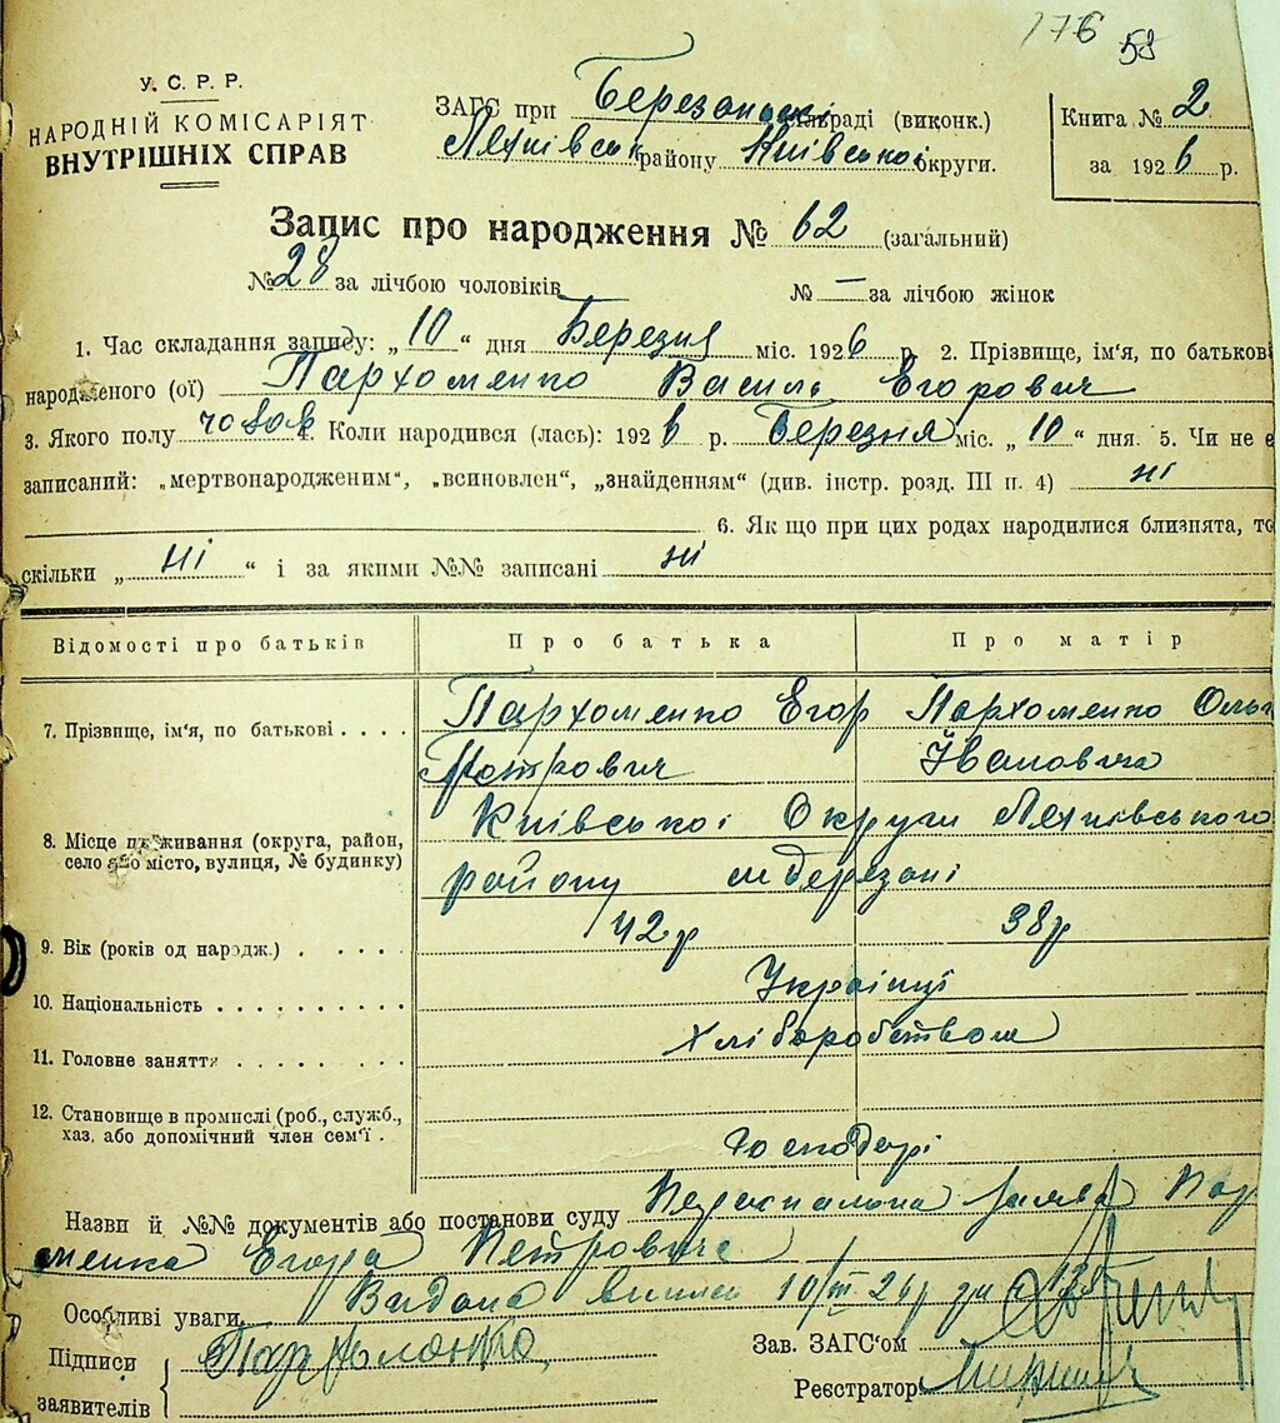 176 58
У. С. Р. Р.
НАРОДНІЙ КОМІСАРІЯТ
ВНУТРІШНІХ СПРАВ
ЗАГС при Березанській сільраді (виконк.)
району Київської округи.
Книга № 2
за 1926 р.
Запис про народження № 62 (загальний)
№ 28 за лічбою чоловіків № — за лічбою жінок
1. Час складання запису: „10“ дня Березня міс. 1926 р. 2. Прізвище, ім'я, по батькові
народженого (ої) Пархоменко Василь Егорович
3. Якого полу чолов 4. Коли народився (лась): 1926 р. Березня міс. „10“ дня. 5. Чи не є
записаний: „мертвонародженим“, „всиновлен“, „знайденням“ (див. інстр. розд. III п. 4) ні
6. Як що при цих родах народилися близнята, то
скільки „ні“ і за якими №№ записані ні
Відомості про батьків Про батька Про матір
7. Прізвище, ім'я, по батькові . . . . Пархоменко Егор Пархоменко Ольг
Петрович Йвановича
8. Місце проживання (округа, район, село або місто, вулиця, № будинку) Київської Округи
району м Березані
9. Вік (років од народж.) . . . . . 42 р 38 р
10. Національність . . . . . . . . . . Українці
11. Головне заняття . . . . . . . . Хліборобством
12. Становище в промислі (роб., служб., хаз. або допомічний член сем'ї . Господарі
Назви й №№ документів або постанови суду заява Пар
менка Егора Петровича
Особливі уваги Видана 10/III 26 р за
Підписи заявителів Пархоменко
Зав. ЗАГС'ом
Реєстратор